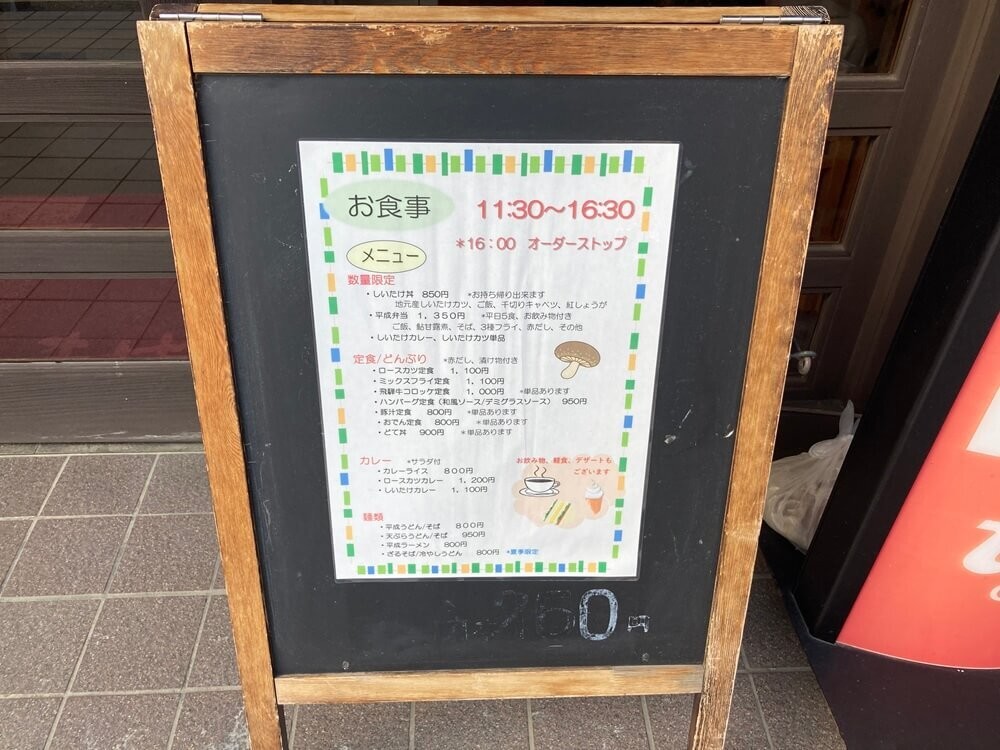 お食事
11:30～16:30
＊16：00 オーダーストップ
メニュー
数量限定
・しいたけ丼 850円 ＊お持ち帰り出来ます
地元産しいたけカツ、ご飯、千切りキャベツ、紅しょうが
・平成弁当 1,350円 ＊平日5食、お飲み物付き
ご飯、鮎甘露煮、そば、3種フライ、赤だし、その他
・しいたけカレー、しいたけカツ単品
定食/どんぶり ＊赤だし、漬け物付き
・ロースカツ定食 1,100円
・ミックスフライ定食 1,100円
・飛騨牛コロッケ定食 1,000円 ＊単品あります
・ハンバーグ定食（和風ソース/デミグラスソース） 950円
・豚汁定食 800円 ＊単品あります
・おでん定食 800円 ＊単品あります
・どて丼 900円 ＊単品あります
カレー ＊サラダ付
・カレーライス 800円
・ロースカツカレー 1,200円
・しいたけカレー 1,100円
お飲み物、軽食、デザートも
ございます
麺類
・平成うどん/そば 800円
・天ぷらうどん/そば 950円
・平成ラーメン 800円
・ざるそば/冷やしうどん 800円 ＊夏季限定
260円